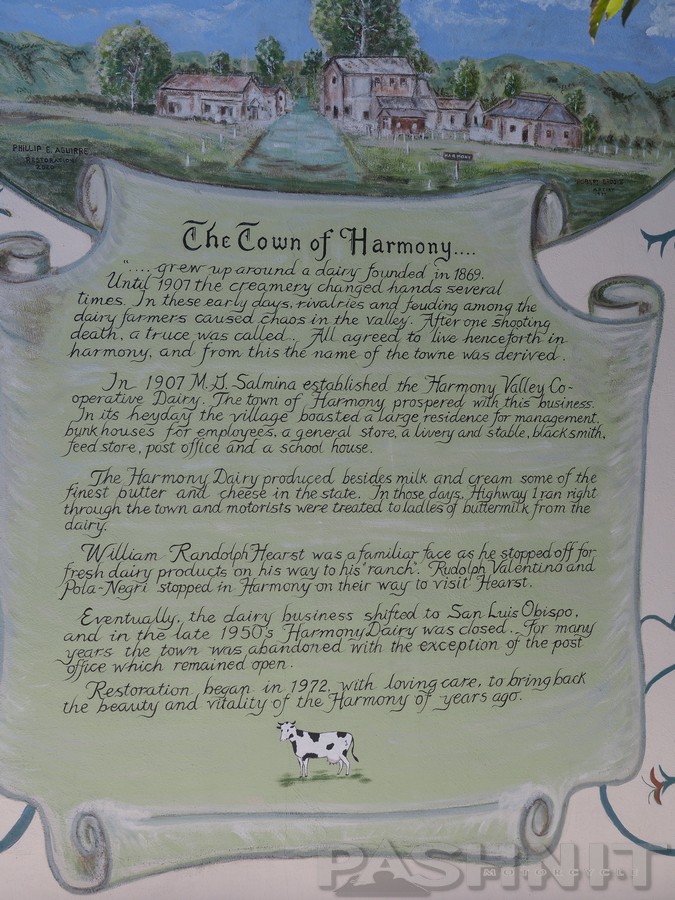 PHILLIP E. AGUIRRE
RESTORATION
2020
HARMONY
The Town of Harmony....
".... grew up around a dairy founded in 1869.
Until 1907 the creamery changed hands several
times. In these early days, rivalries and feuding among the
dairy farmers caused chaos in the valley. After one shooting
death, a truce was called. All agreed to live henceforth in
harmony, and from this the name of the towne was derived.
In 1907 M.G. Salmina established the Harmony Valley Co-
operative Dairy. The town of Harmony prospered with this business.
In its heyday the village boasted a large residence for management,
bunkhouses for employees, a general store, a livery and stable, blacksmith,
feed store, post office and a school house.
The Harmony Dairy produced besides milk and cream some of the
finest butter and cheese in the state. In those days, Highway 1 ran right
through the town and motorists were treated to ladles of buttermilk from the
dairy.
William Randolph Hearst was a familiar face as he stopped off for
fresh dairy products on his way to his "ranch". Rudolph Valentino and
Pola-Negri stopped in Harmony on their way to visit Hearst.
Eventually, the dairy business shifted to San Luis Obispo,
and in the late 1950's Harmony Dairy was closed... For many
years the town was abandoned with the exception of the post
office which remained open.
Restoration began in 1972, with loving care, to bring back
the beauty and vitality of the Harmony of years ago.
PASHNIT
MOTORCYCLE